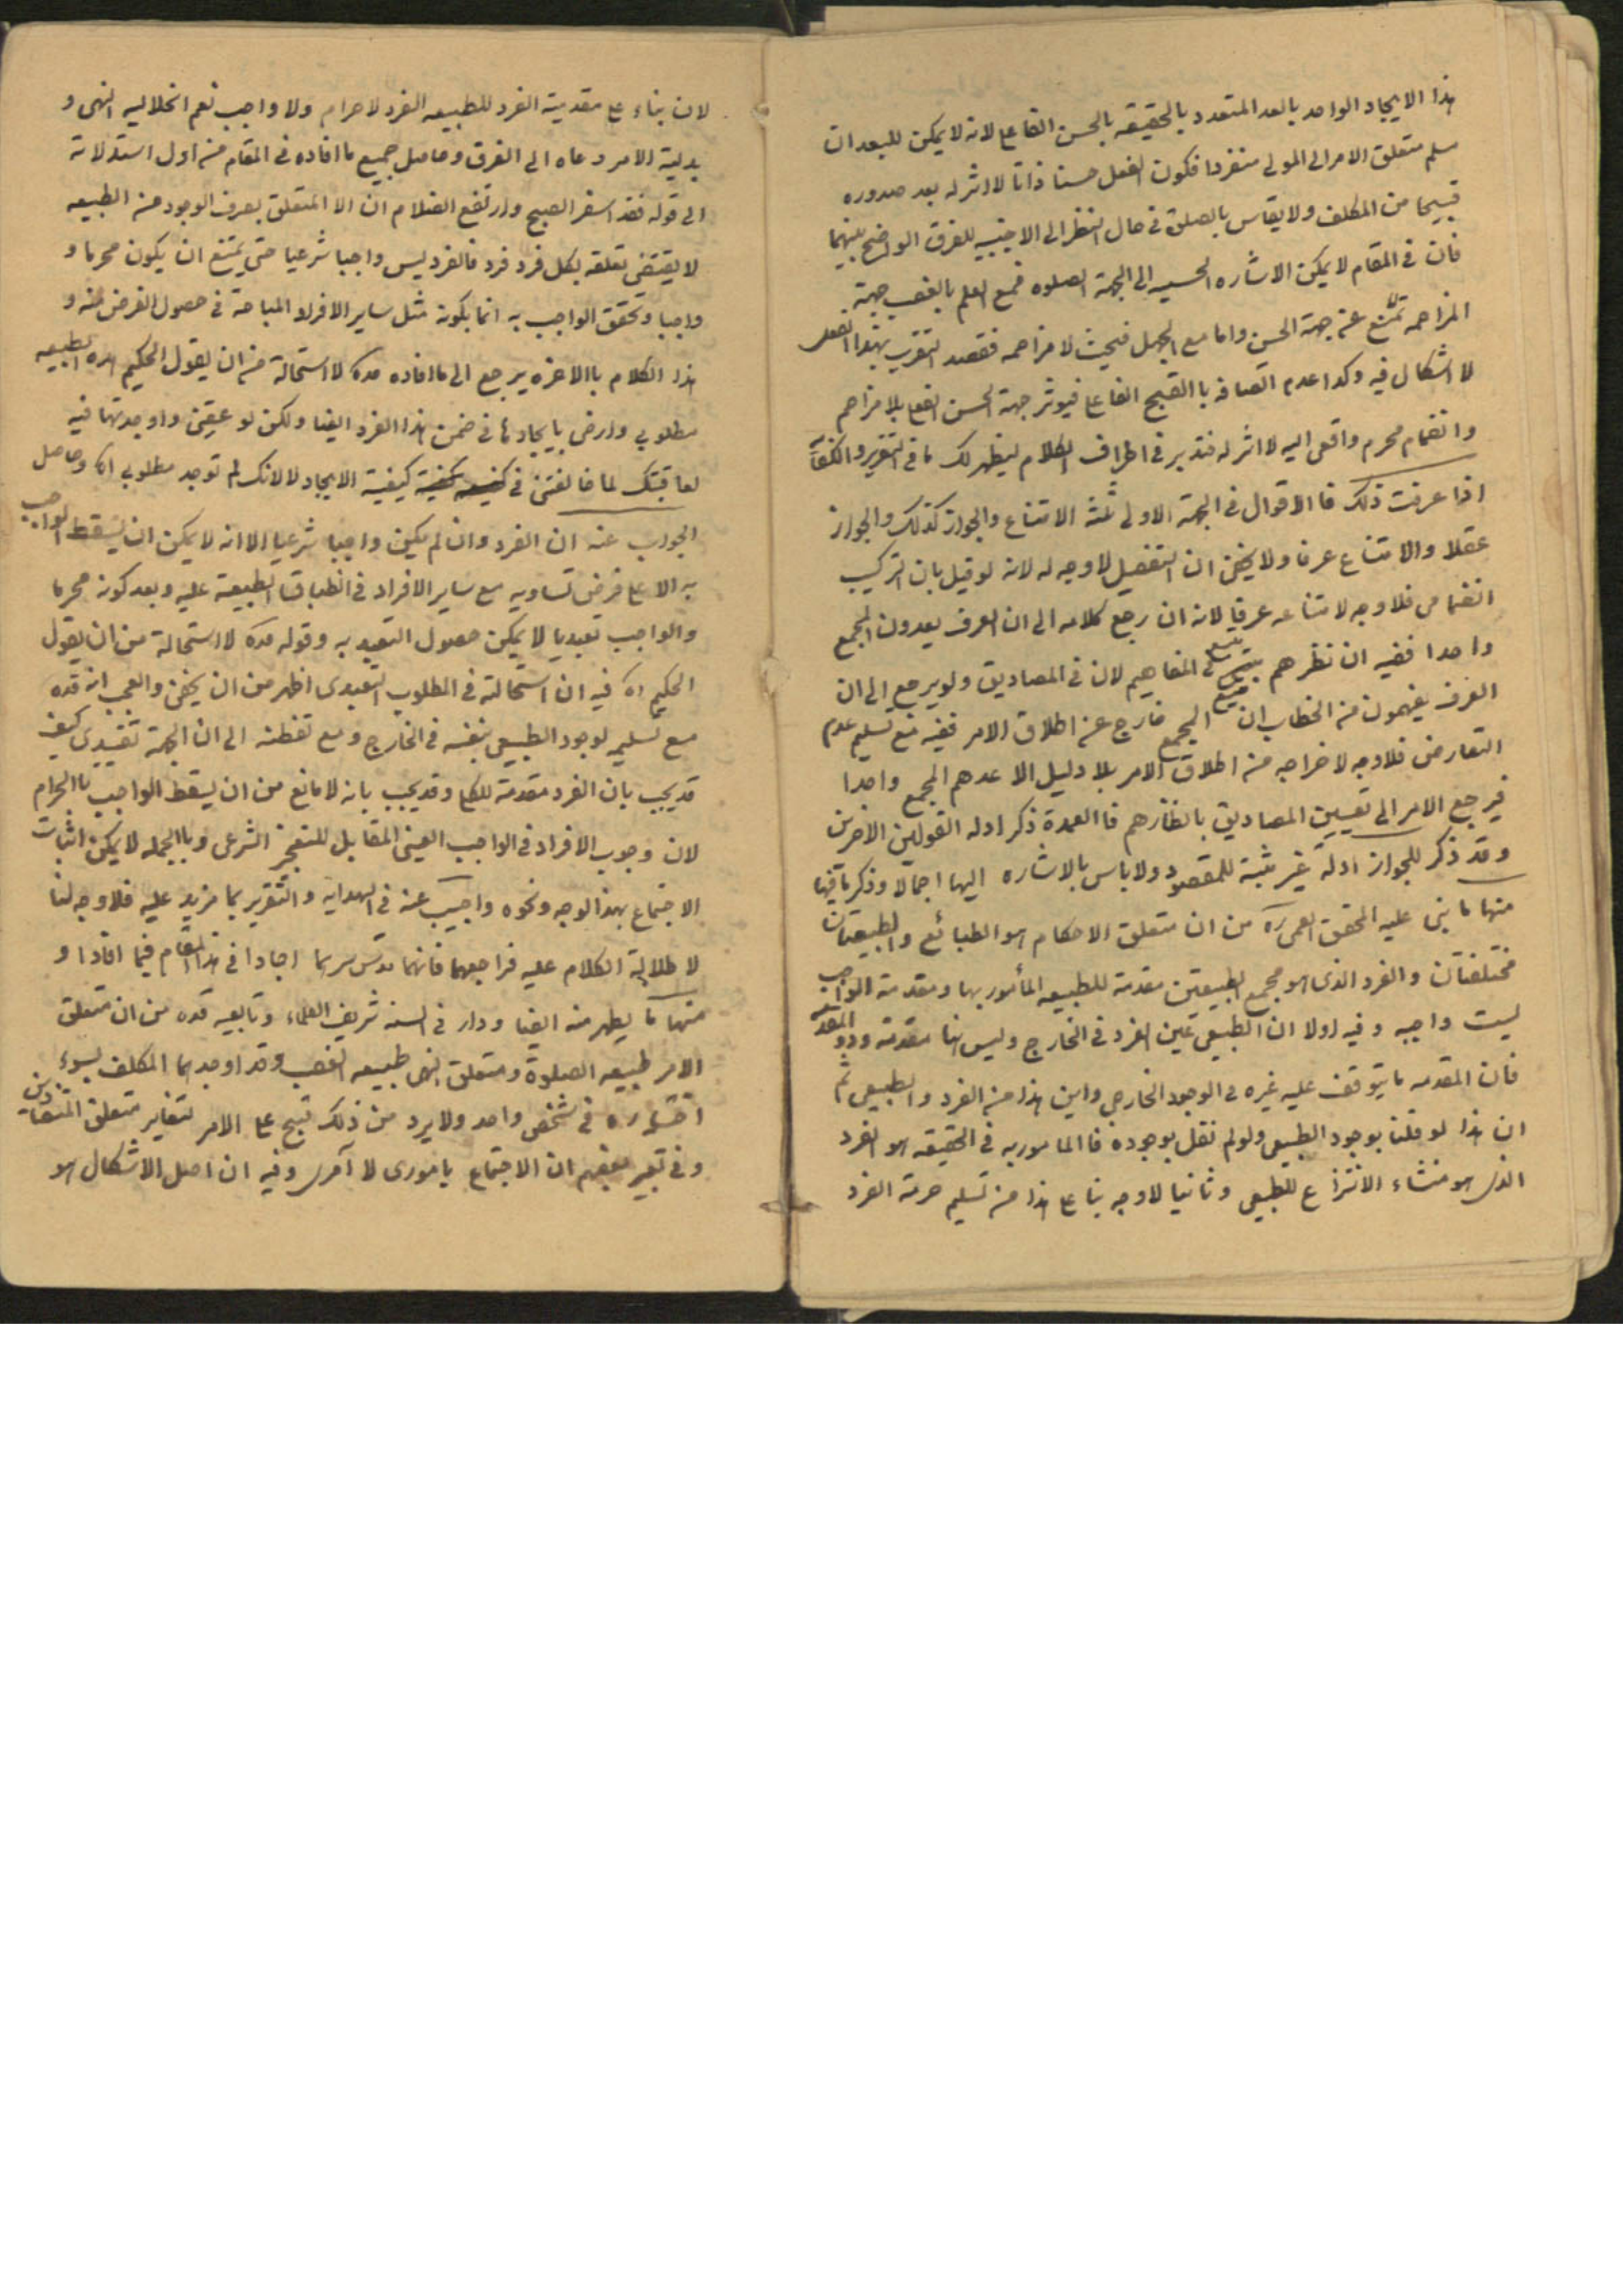 هذا الايجاد الواحد بالعد المتعدد بالحقيقه بالحسن الفاعلى لانه لا يمكن للعبد ان
سلم متعلق الامر الى المولى منفردا فكون الفعل حسنا ذاتا لا اثر له بعد صدوره
قبيحا من المكلف ولا يقاس بالصلوة فى حال النظر الى الاجنبيه للفرق الواضح بينهما
فان فى المقام لا يمكن الاشاره الحسيه الى الجهة الصلوه فمع العلم بالغصب جهة
المزاحمه تمنع عن جهة الحسن واما مع الجهل فحيث لا مزاحمه فقصد التقرب بهذا الفعل
لا اشكال فيه وكذا عدم اتصافه باالقبيح الفاعلى فيوثر جهة الحسن الفعلى بلا مزاحم
وانضمام محرم واقعى اليه لا اثر له فتدبر فى اطراف الكلام ليظهر لك ما فى التقرير والكفاية
اذا عرفت ذلك فا الاقوال فى الجهة الاولى ثلثه الامتناع والجواز كذلك والجواز
عقلا والامتناع عرفا ولا يخفى ان التفصيل لا وجه له لانه لو قيل بان التركيب
انضمامى فلا وجه لامتناعه عرفيا لانه ان رجع كلامه الى ان العرف يعدون المجمع
واحدا ففيه ان نظرهم متبع فى المفاهيم لا فى المصاديق ولو يرجع الى ان
العرف يفهمون من الخطاب ان المجمع خارج عن اطلاق الامر ففيه منع تسليم عدم
التعارض فلا وجه لاخراجه من اطلاق الامر بلا دليل الا عدهم المجمع واحدا
فيرجع الامر الى تعيين المصاديق بانظارهم فا العمدة ذكر ادله القولين الاخرين
وقد ذكر للجواز ادلة غير مثبتة للمقصود ولا باس بالاشاره اليها اجمالا وذكر ما فيها
منها ما بنى عليه المحقق القمى ره من ان متعلق الاحكام هو الطبائع والطبيعتان
مختلفتان والفرد الذى هو مجمع الطبيعتين مقدمة للطبيعه المأمور بها ومقدمة الواجب
ليست واجبه وفيه اولا ان الطبيعى عين الفرد فى الخارج وليس هنا مقدمه وذو المقدمه
فان المقدمه ما يتوقف عليه غيره فى الوجود الخارجى واين هذا من الفرد والطبيعى ثم
ان هذا لو قلنا بوجود الطبيعى ولو لم نقل بوجوده فا المامور به فى الحقيقه هو الفرد
الذى هو منشاء الانتزاع للطبيعى وثانيا لا وجه بناء على هذا من تسليم حرمة الفرد
لان بناء على مقدمية الفرد للطبيعه الفرد لا حرام ولا واجب نعم انحلاليه النهى و
بدلية الامر دعاه الى الفرق وحاصل جميع ما افاده فى المقام من اول استدلاله
الى قوله فقد اسفر الصبح وارتفع الضلام ان الا المتعلق بصرف الوجود من الطبيعه
لا يقتضى تعلقه بكل فرد فرد فالفرد ليس واجبا شرعيا حتى يمتنع ان يكون محرما و
واجبا وتحقق الواجب به انما بكونه مثل ساير الافراد المباحة فى حصول الغرض منه و
هذا الكلام باالاخره يرجع الى ما افاده قده لا استحالة من ان يقول الحكيم هذه الطبيعه
مطلوبى وارضى بايجادها فى ضمن هذا الفرد ايضا ولكن لو عصيتنى واوجدتها فيه
لعاقبتك لما خالفتنى فى كيفية الايجاد لا لانك لم توجد مطلوبى اه وحاصل
الجواب عنه ان الفرد وان لم يكن واجبا شرعيا الا انه لا يمكن ان يسقط الواجب
به الا على فرض تساويه مع ساير الافراد فى انطباق الطبيعة عليه وبعد كونه محرما
والواجب تعبديا لا يمكن حصول التعبد به وقوله قده لا استحالة من ان يقول
الحكيم اه فيه ان استحالته فى المطلوب التعبدى اظهر من ان يخفى والعجب انه قده
مع تسليمه لوجود الطبيعى بنفسه فى الخارج ومع تفطنه الى ان الجهة تقييدى كيف
قد يجيب بان الفرد مقدمة للكلى وقد يجيب بانه لا مانع من ان يسقط الواجب باالحرام
لان وجوب الافراد فى الواجب العينى المقابل للتخيير الشرعى وباالجمله لا يمكن اثبات
الاجتماع بهذا الوجه ونحوه واجيب عنه فى الهدايه والتقرير بما مزيد عليه فلا وجه لنا
لاطالة الكلام عليه فراجعهما فانهما قدس سرهما اجادا فى هذا المقام فيما افادا و
منها ما يظهر منه ايضا ودار فى السنه شريف العلماء وتابعيه قده من ان متعلق
الامر طبيعه الصلوة ومتعلق النهى طبيعه الغصب وقد اوجدهما المكلف بسوء
اختياره فى شخص واحد ولا يرد من ذلك قبح على الامر لتغاير متعلق المتضادين
وفى تعبير بعضهم ان الاجتماع مامورى لا آمرى وفيه ان اصل الاشكال هو